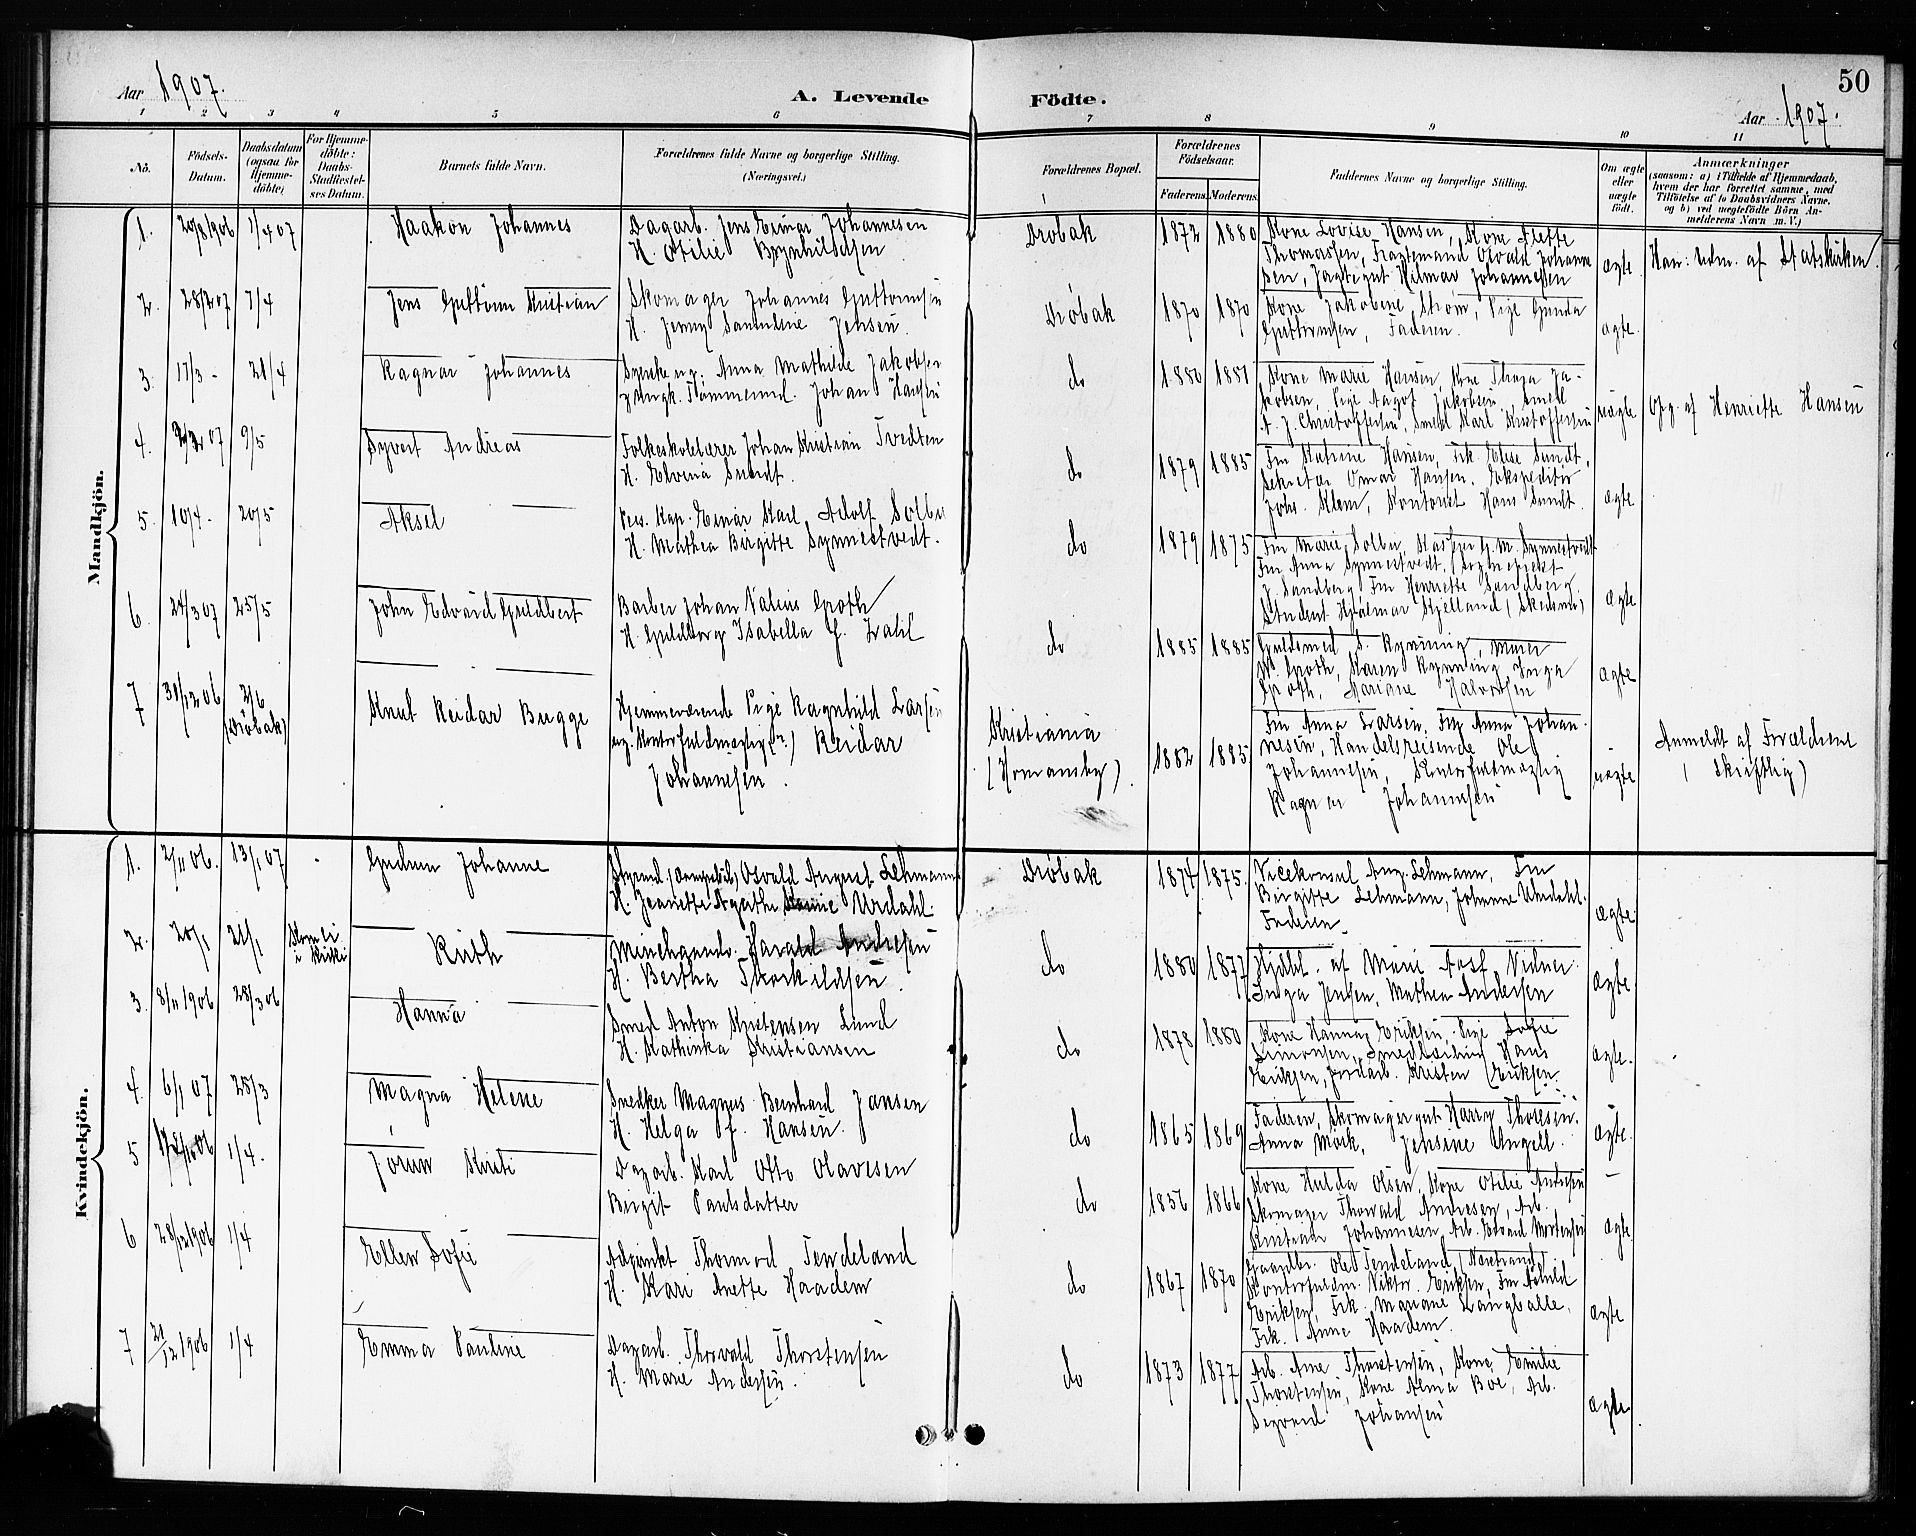 50
Aar 1907.
A. Levende Födte.
Aar 1907.
1 2 3 4 5 6 7 8 9 10 11
No.
Födsels-
Datum.
Daabsdatum
(ogsaa for
Hjemme-
döbte)
For Hjemme-
döbte:
Daabs-
Stadfæstel-
ses Datum.
Barnets fulde Navn.
Forældrenes fulde Navne og borgerlige Stilling.
(Næringsvei.)
Forældrenes Bopæl.
Forældrenes
Födselsaar.
Faderens Moderens
Faddernes Navne og borgerlige Stilling.
Om ægte
eller
uægte
födt.
Anmærkninger
(saasom: a) i Tilfælde af Hjemmedaab,
hvem der har forrettet samme, med
Tilföielse af to Daabsvidners Navne,
og b) ved uægtefödte Börn An-
melderens Navn m. V.)
Mandkjön.
1. 20/8 1906 1/4 07 Haakon Johannes
Dagarb. Jens Einar Johannesen
H. Otilie Brynhildsen
Drøbak 1872 1880
Kone Lovise Hansen, Kone Alette
Thomassen, Fragtemand Osvald Johanne
sen, Jagtegut Hilmar Johannessen
ægte Han: udm. af Statskirken.
2. 28/2 07 7/4 Jens Guttorm Kristian
Skomager Johannes Guttormsen
H. Jenny Jensen
Drøbak 1870 1870
Kone Jakobine Strøm, Pige Gunda
Guttormsen, Faderen.
ægte.
3. 17/3 - 21/4 Ragnar Johannes
Anna Mathilde Jakobsen
Johan Hansen
do 1880 1881
Kone Marie Hansen, Kone Thora Ja-
kobsen, Pige Aagot Jakobsen, Smed
A. J. Christoffersen, Smed Karl Kristoffersen
uægte Opg. af Henriette Hansen
4. 07 9/5 Syvert Andreas
Folkeskolelærer Johan Kristian Tvedten
H. Elvina Sundt.
do 1879 1885
Fru Katrine Hansen, Frk. Elise Sundt,
Sekretær Omar Hansen, Ekspeditør
Johs. Klem, Kontorist Hans Sundt.
ægte
5. 10/4 - 20/5 Aksel
Pers. Kap. Einar Karl Adolf Solbu
H. Mathea Birgitte Synnestvedt.
do 1879 1875
Fru Marie Solbu, Kasserer G. M. Synnestvedt
Fru Anna Synnestvedt, Sogneprest
J. Sandberg Fru Henriette Sandberg,
Student Hjalmar Kjelland (Skedsmo)
ægte
6. 24/3 07 25/5 John Edvard Guldbert
Barber Johan Valius Groth
H. Guldborg Isabella G. Dahl
do 1885 1885
Guldsmed S. Rynning, Murer
W. Groth, Karen Rynning Inga
Groth, Mariane Halvorsen
ægte
7 31/12 06 2/6
(Drøbak)
Knut Reidar Bugge
Hjemmeværende Pige Ragnhild Larsen
ug. Kontorfuldmægtig Reidar
Johannesen.
Kristiania
(Homansby).
1882 1885
Fru Anna Larsen, Fru Anna Johan-
nesen, Handelsreisende Ole
Johannesen, Kontorfuldmægtig
Ragnar Johannesen
uægte
Anmeldt af Forældrene
(Skriftlig)
Kvindekjön.
1. 2/11 06. 13/1 07 Gudrun Johanne
Styrmd. Osvald August Lehmann
H. Jeanette Agathe Urdahl.
Drøbak 1874 1875.
Vicekonsul Aug. Lehmann, Fru
Birgitte Lehmann, Johanne Urdahl.
Faderen.
ægte.
2. 20/1 21/1 Ruth
Harald Andresen
H. Bertha Thorkildsen.
do 1880 1877
Hjdbt. af Marie Aas f. Vidner
Inga Jensen, Mathea Andersen
ægte.
3. 8/11 1906 28/3 06 Hanna
Smed Anton Kristensen Lund
H. Kathinka Kristiansen
do 1878 1880
Kone Hanna Eriksen, Pige Sofie
Simonsen, Smedlærling Hans
Eriksen, Jordarb. Kristen Eriksen.
ægte.
4. 6/1 07 28/3 Magna Helene
Snedker Magnus Bernhard Jansen
H. Helga f. Hansen.
do 1865 1869
Faderen, Skomagergut Harry Thoresen.
Anna Mørk, Jensine Ungell.
ægte.
5 06 1/4. Jorun Kirsti
Dagarb. Karl Otto Olavesen
Birgit Paulsdatter
do 1856 1866
Kone Hulda Olsen, Kone Otilie Andresen
Skomager Thorvald Andresen, Arb.
Kristian Johannesen, Arb. Edvard Mortensen
ægte.
6 28/12 1906 1/4 Ellen Sofie
Adjunkt Thormod Tendeland
H. Kari Anette Haadem
do 1867 1870
Gaardbr. Ole Tendeland, (Norstrand)
Kontorfuldm. Viktor Eriksen, Fru Ashild
Eriksen, Frk. Mariane Langballe,
Frk. Anne Haadem.
ægte
7 21/12 1906 1/4 Emma Pauline
Dagarb. Thorvald Thorstensen
H. Marie Andersen.
do 1873 1877
Arb. Arne Thorstensen, Kone Emilie
Thorstensen, Kone Alma Boe, Arb.
Sigvard Johansen
ægte